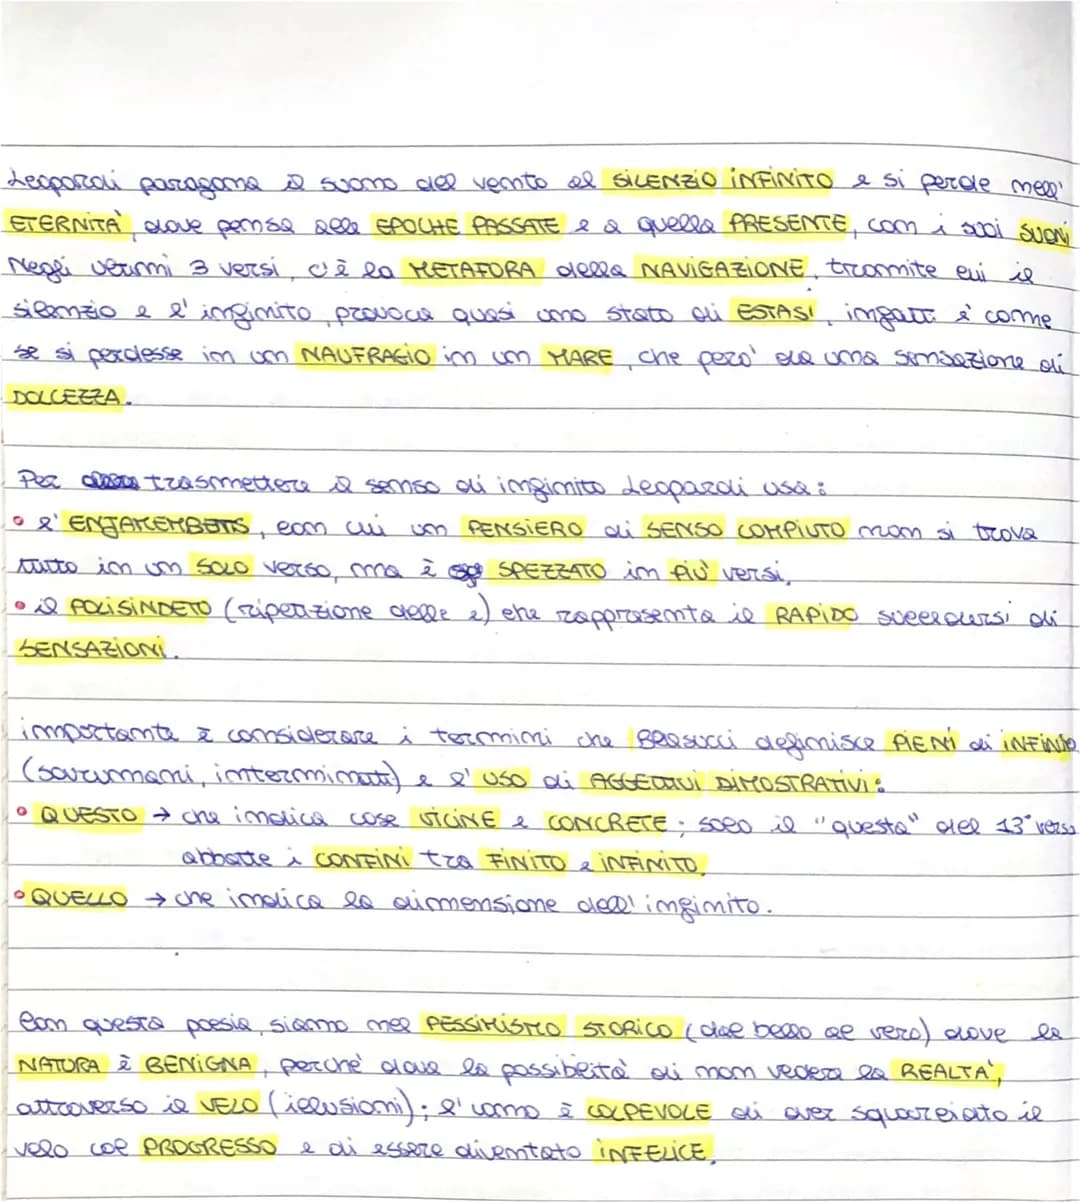 Leopardi paragona il suono del vento al SILENZIO INFINITO e si perde nell'
ETERNITÀ, dove pensa alle EPOCHE PASSATE e a quella PRESENTE, con i suoi SUONI
Negli ultimi 3 versi, c'è la METAFORA della NAVIGAZIONE, tramite cui il
silenzio e l'infinito, provoca quasi uno stato di ESTASI, infatti è come
se si perdesse in un NAUFRAGIO in un MARE, che però da una sensazione di
DOLCEZZA.
Per trasmettere il senso di infinito Leopardi usa:
• l'ENJAMEMBETS, con cui un PENSIERO di SENSO COMPIUTO non si trova
tutto in un SOLO verso, ma è SPEZZATO in PIÙ versi.
• il POLISINDETO (ripetizione delle e) che rappresenta il RAPIDO succedersi di
SENSAZIONI.
importante è considerare i termini che Blasucci definisce PIENI di INFINITO
(sovrumani, interminati) e l'USO di AGGETTIVI DIMOSTRATIVI:
• QUESTO → che indica cose VICINE e CONCRETE; solo il "questa" del 13° verso
abbatte i CONFINI tra FINITO e INFINITO.
• QUELLO → che indica la dimensione dell'infinito.
Con questa poesia, siamo nel PESSIMISMO STORICO (dal bello al vero) dove la
NATURA è BENIGNA, perché dava la possibilità di non vedere la REALTÀ,
attraverso il VELO (illusioni); l'uomo è COLPEVOLE di aver squarciato il
velo col PROGRESSO e di essere diventato INFELICE.